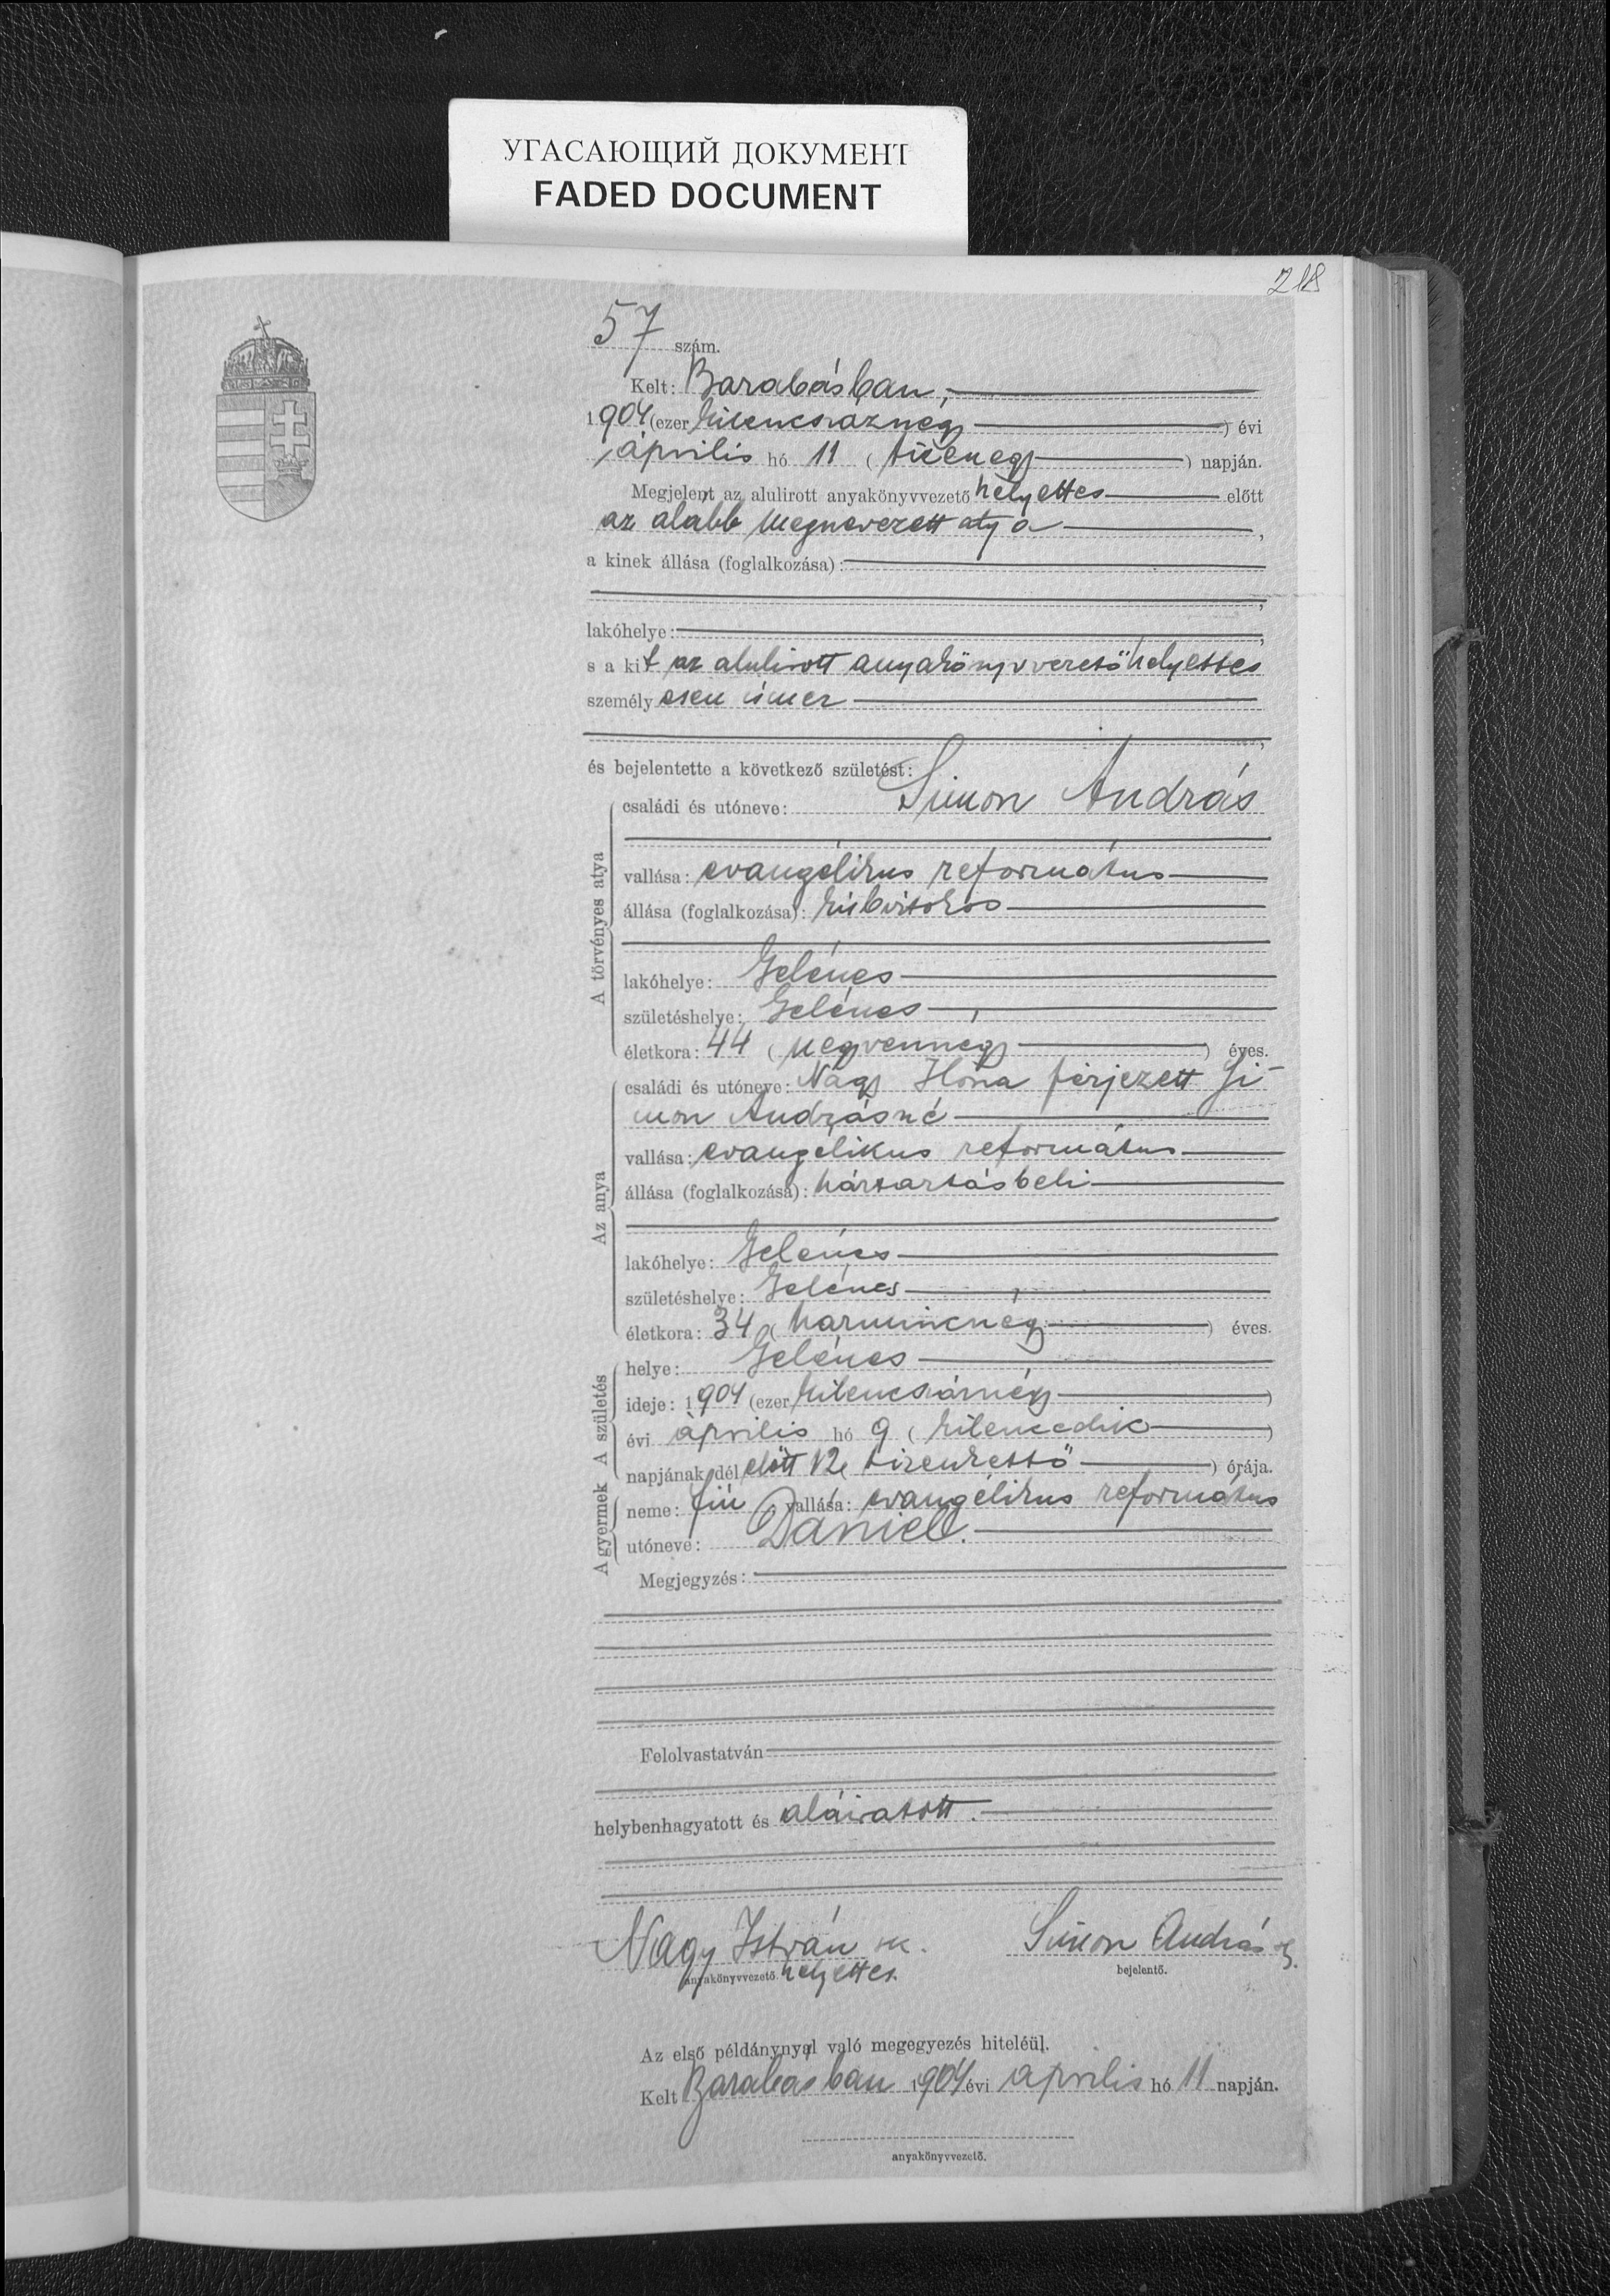 УГАСАЮЩИЙ ДОКУМЕНТ
FADED DOCUMENT
218
57 szám.
Kelt: Barabásban,
1904 (ezer kilencszáznégy) évi
április hó 11 (tizenegy) napján.
Megjelent az alulirott anyakönyvvezető helyettes előtt
az alább megnevezett atya,
a kinek állása (foglalkozása):
lakóhelye:
s a kit az alulirott anyakönyvvezető helyettes
személyesen ismer
és bejelentette a következő születést:
A törvényes atya
családi és utóneve: Simon András
vallása: evangélikus református
állása (foglalkozása): kisbirtokos
lakóhelye: Gelénes
születéshelye: Gelénes,
életkora: 44 (negyvennégy) éves.
Az anya
családi és utóneve: Nagy Ilona férjezett Si-
mon Andrásné
vallása: evangélikus református
állása (foglalkozása): háztartásbeli
lakóhelye: Gelénes
születéshelye: Gelénes,
életkora: 34 (harmincnégy) éves.
A születés
helye: Gelénes
ideje: 1904 (ezer kilencszáznégy)
évi április hó 9 (kilencedik)
napjának dél előtt 12 (tizenkettő) órája.
A gyermek
neme: fiú vallása: evangélikus református
utóneve: Dániel.
Megjegyzés:
Felolvastatván
helybenhagyatott és aláiratott.
Nagy István sk. Simon András
anyakönyvvezető helyettes. bejelentő.
Az első példánynyal való megegyezés hiteléül.
Kelt Barabásban 1904 évi április hó 11 napján.
anyakönyvvezető.